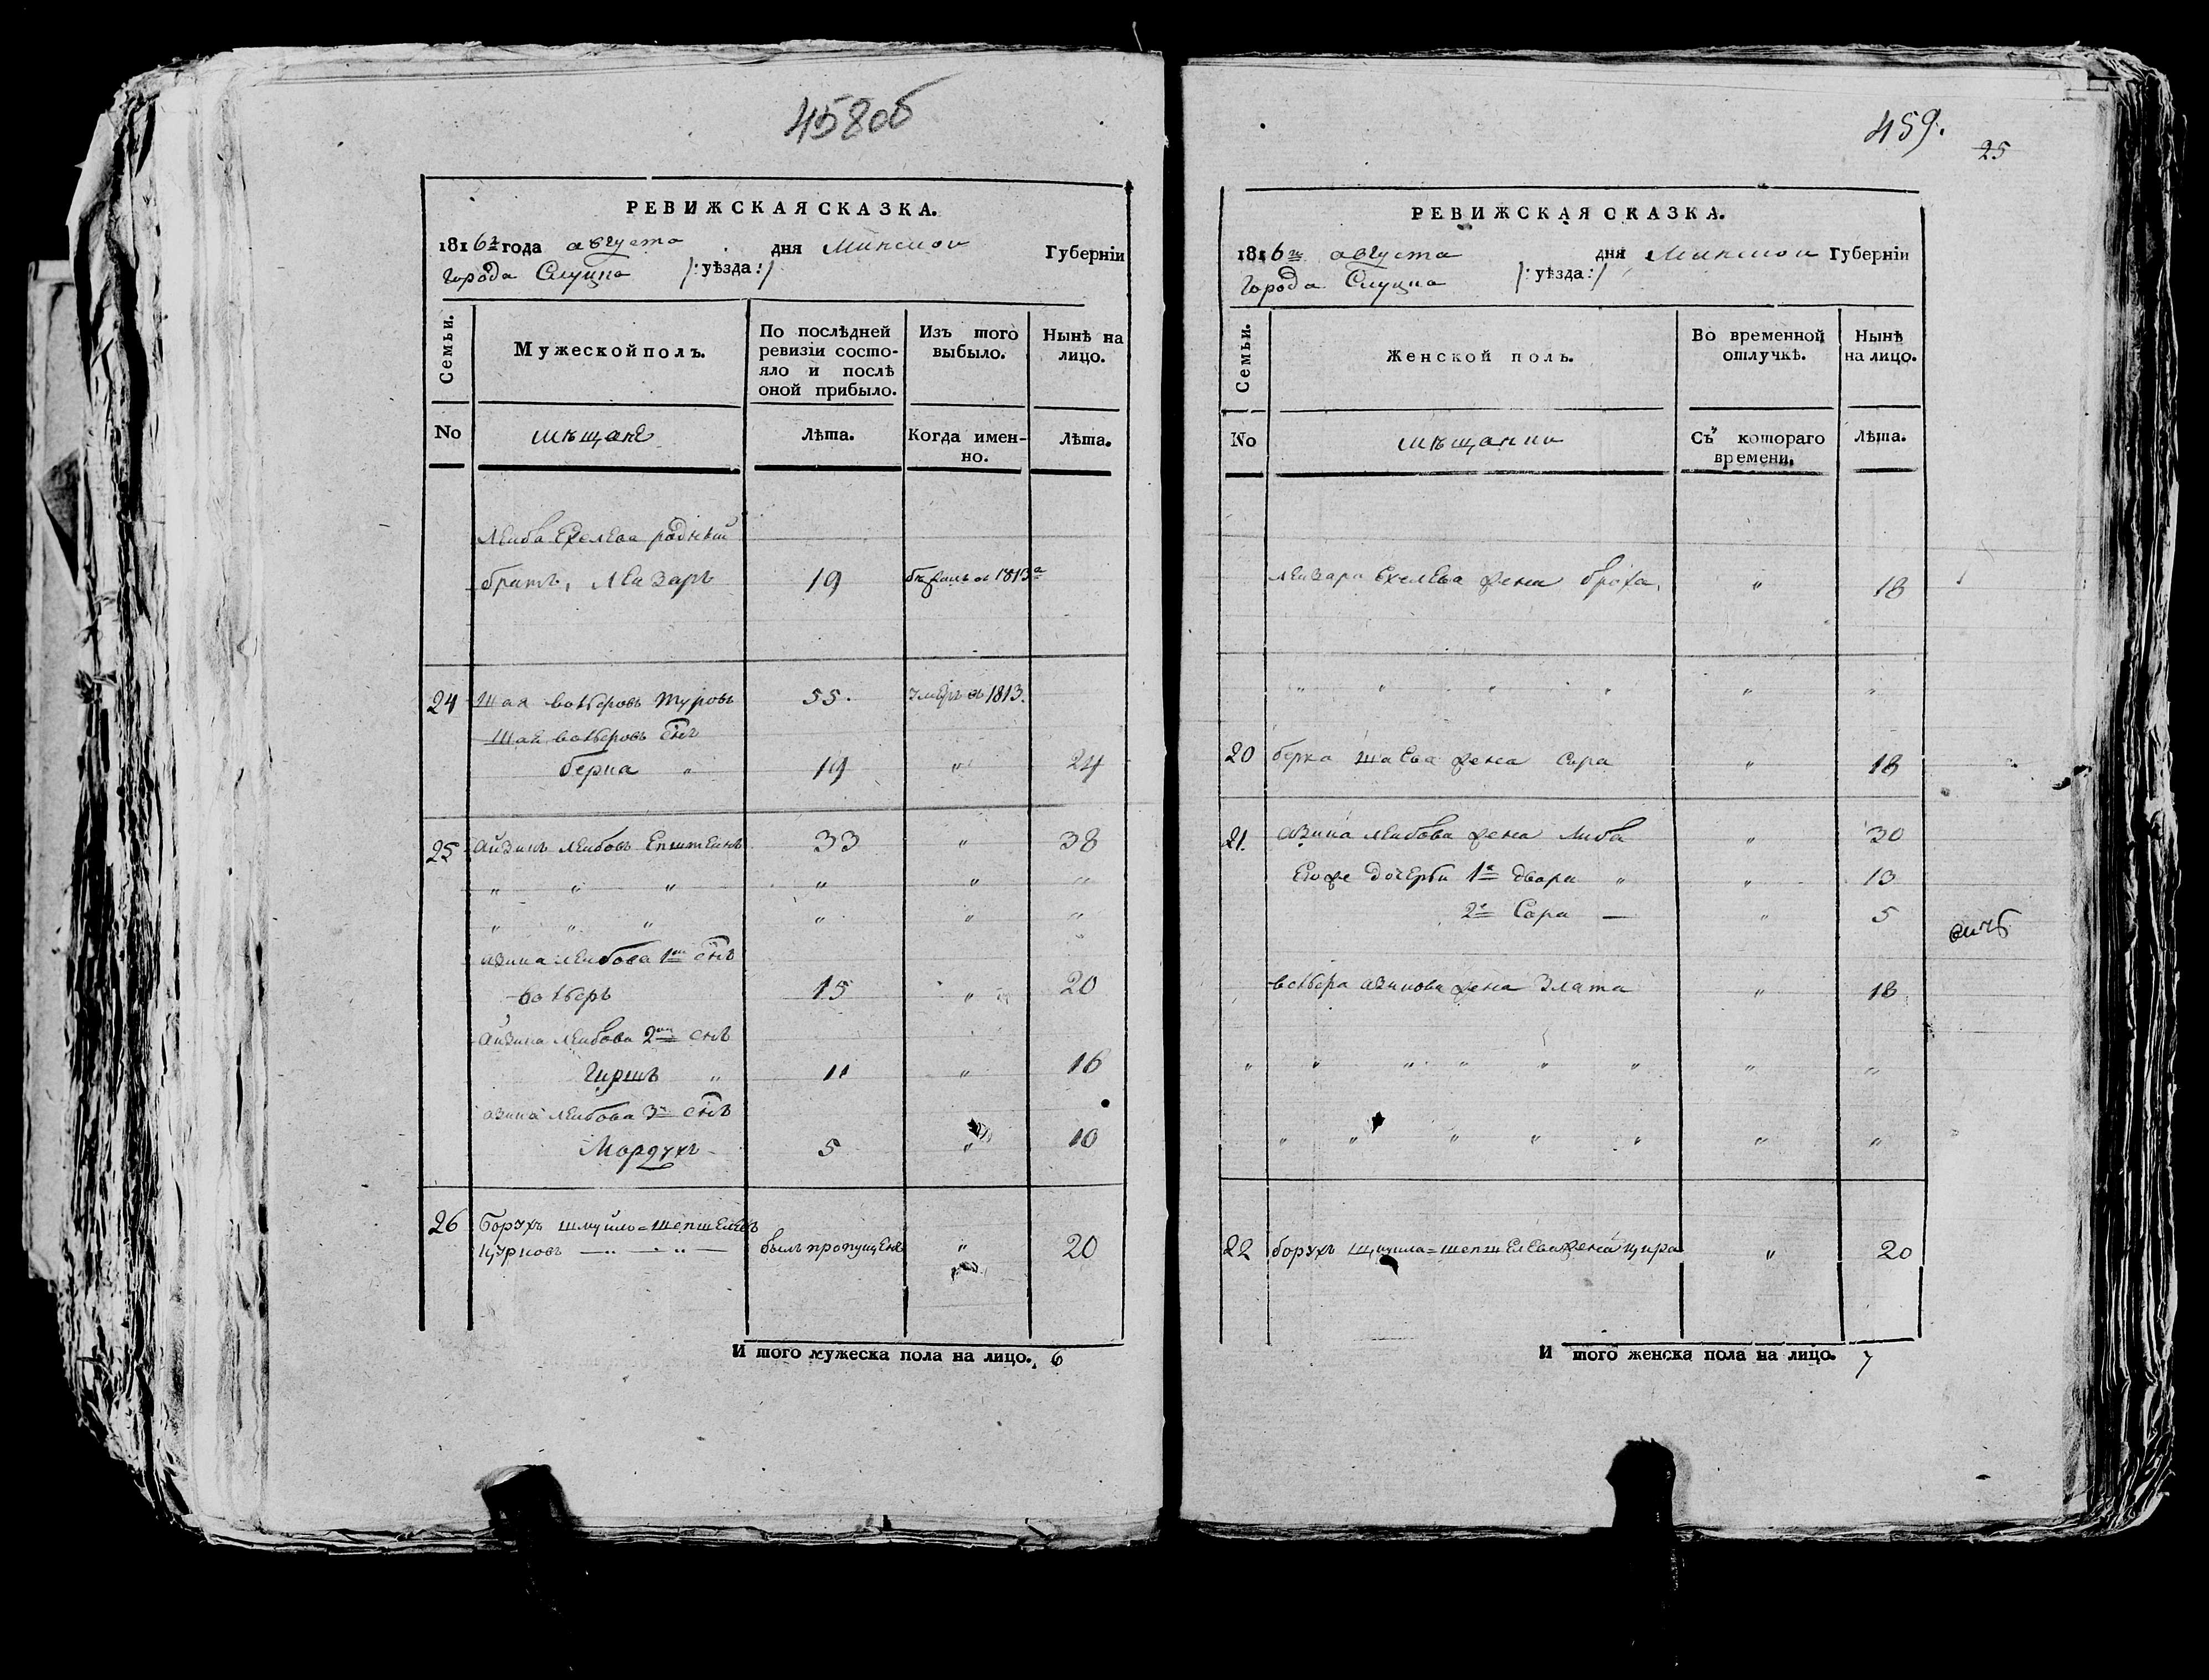 458об
РЕВИЖСКАЯ СКАЗКА.
1816го года августа дня Минской Губерніи
города Слуцка /:уѣзда:/
Семьи.
Мужеской полъ.
По послѣдней ревизіи состояло и послѣ оной прибыло.
Изъ того выбыло.
Нынѣ на лицо.
No
мѣщане
Лѣта.
Когда именно.
Лѣта.
Лейба Ехелева родный
братъ, Лейзаръ 19 бѣжалъ въ 1813а
24 Шая вольберовъ Туровъ 55. умеръ въ 1813.
Шая вольберовъ сынъ
берка " 19 " 24
25 Айзикъ Лейбовъ Епштейнъ 33 " 38
" " " " " "
" " " " " "
Айзика Лейбова 1й сынъ
вольберъ 15 " 20
Айзика Лейбова 2й сынъ
Гиршъ " 11 " 16
Айзика Лейбова 3й сынъ
Мордухъ 5 " 10
26 Борухъ шмуйло=шепшелевъ
Цурковъ былъ пропущенъ " 20
И того мужеска пола на лицо. 6
459.
25
РЕВИЖСКАЯ СКАЗКА.
1816го августа дня Минской Губерніи
города Слуцка /:уѣзда:/
Семьи.
Женской полъ.
Во временной отлучкѣ.
Нынѣ на лицо.
No
мѣщанки
Съ котораго времени.
Лѣта.
Лейзара Ехелева жена броха, " 18
" " " " " "
20 берка шаева жена Сора " 18
21. Айзика Лейбова жена Либа " 30
Егоже дочерьи 1я двора " " 13
2я Сора — " 5
вольбера айзикова жена Злата " 18
" " " " " " " "
" " " " " " "
22 борухъ Шмуйла=шепшелева жена цира " 20
И того женска пола на лицо. 7